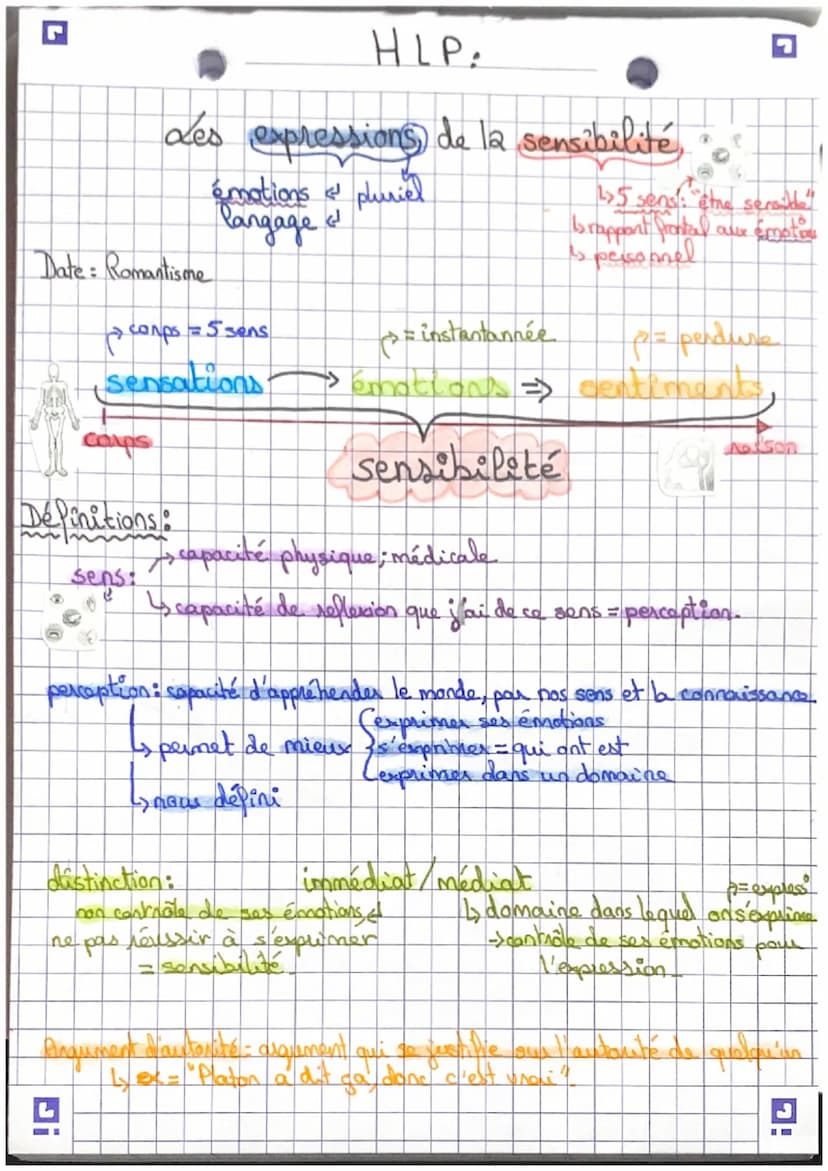 HLP:
Les expressions de la sensibilité
émotions ↲ pluriel
langage ↲
↳ 5 sens: "être sensible"
↳ rapport frontal aux émotions
↳ personnel
Date = Romantisme
→ corps = 5 sens
→ = instantannée
→ = perdure
sensations → émotions ⇒ sentiments
corps
raison
sensibilité
Définitions:
sens: → capacité physique; médicale
↳ capacité de reflexion que j'ai de ce sens = perception.
perception: capacité d'appréhender le monde, par nos sens et la connaissance
↳ permet de mieux
exprimer ses émotions
s'exprimer = qui ont est
exprimer dans un domaine
↳ nous défini
distinction: immédiat/médiat
→ = express°
non contrôle de ses émotions ↲
↳ domaine dans lequel on s'exprime
ne pas réussir à s'exprimer
→ contrôle de ses émotions pour
= sensibilité
l'expression
Argument d'autorité = argument qui se justifie sur l'autorité de quelqu'un
↳ ex = "Platon a dit ça, donc c'est vrai"